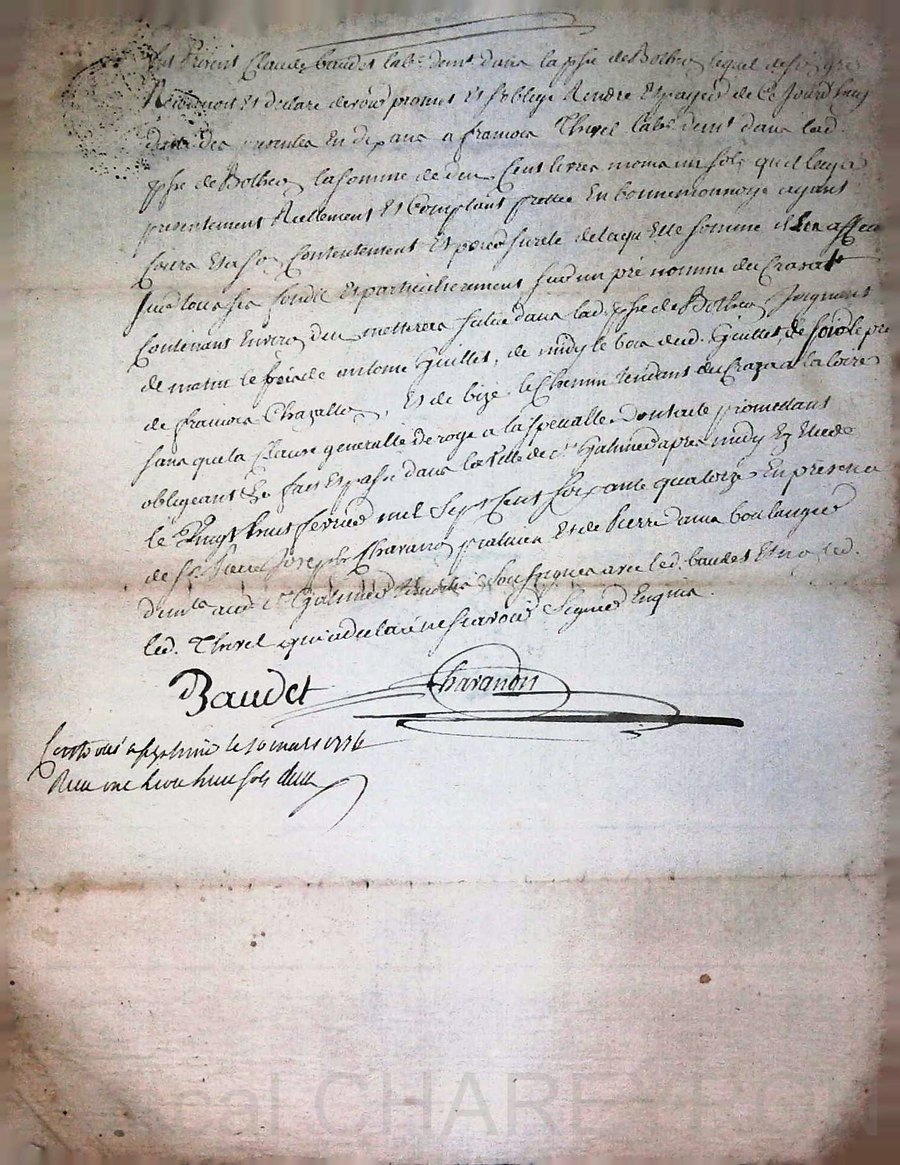 Est Present Claude baudet lab.r dem.t dans la psse de Botheo lequel de son gre
Reconnoit Et declare devoir promet Et soblige Rendre Et payer de Ce Jourdhuy
datte des presentes En dix ans a francois Thivel lab.r dem.t dans lad.
psse de Botheo la somme de deux Cent livres moins un sols quil luy a
presentement Reellement Et Comptant prettée En bonne monnoye ayant
Cours Et a son Contentement Et pour surete de laquelle somme il En affecte
sur tous ses fonds Et particulierement sur un pré nommé du Crazat
Contenant Environ deux metterées situé dans lad. psse de Botheo Joignant
de matin le pré de antoine Guillet, de midy le bois dud. Guillet, de soir le pré
de francois Chazallon, Et de bize le Chemin tendant du Crazat a la loire
sans que la Clause generalle deroge a la specialle Dont acte promettant
obligeant &c fait Et passé dans la ville de S.t Galmier apres midy En Etude
le vingt huit fevrier mil sept Cent soixante quatorze En presence
de s.r Pierre Joseph Charanon praticien Et de Pierre boulanger
dem.ts aud. S.t Galmier soussignés avec led. baudet Et non led.
led. Thivel qui a declaré ne scavoir signer Enquis.
Baudet Charanon
le 10 mars 1774
Reçu une livre huit sols
Pascal CHAREYRON